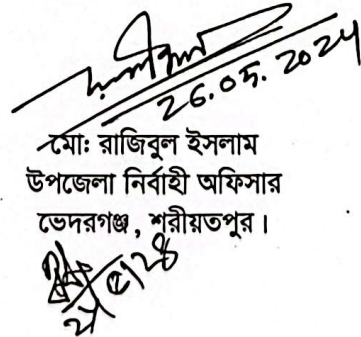 26.05.2024
মোঃ রাজিবুল ইসলাম
উপজেলা নির্বাহী অফিসার
ভেদরগঞ্জ, শরীয়তপুর।